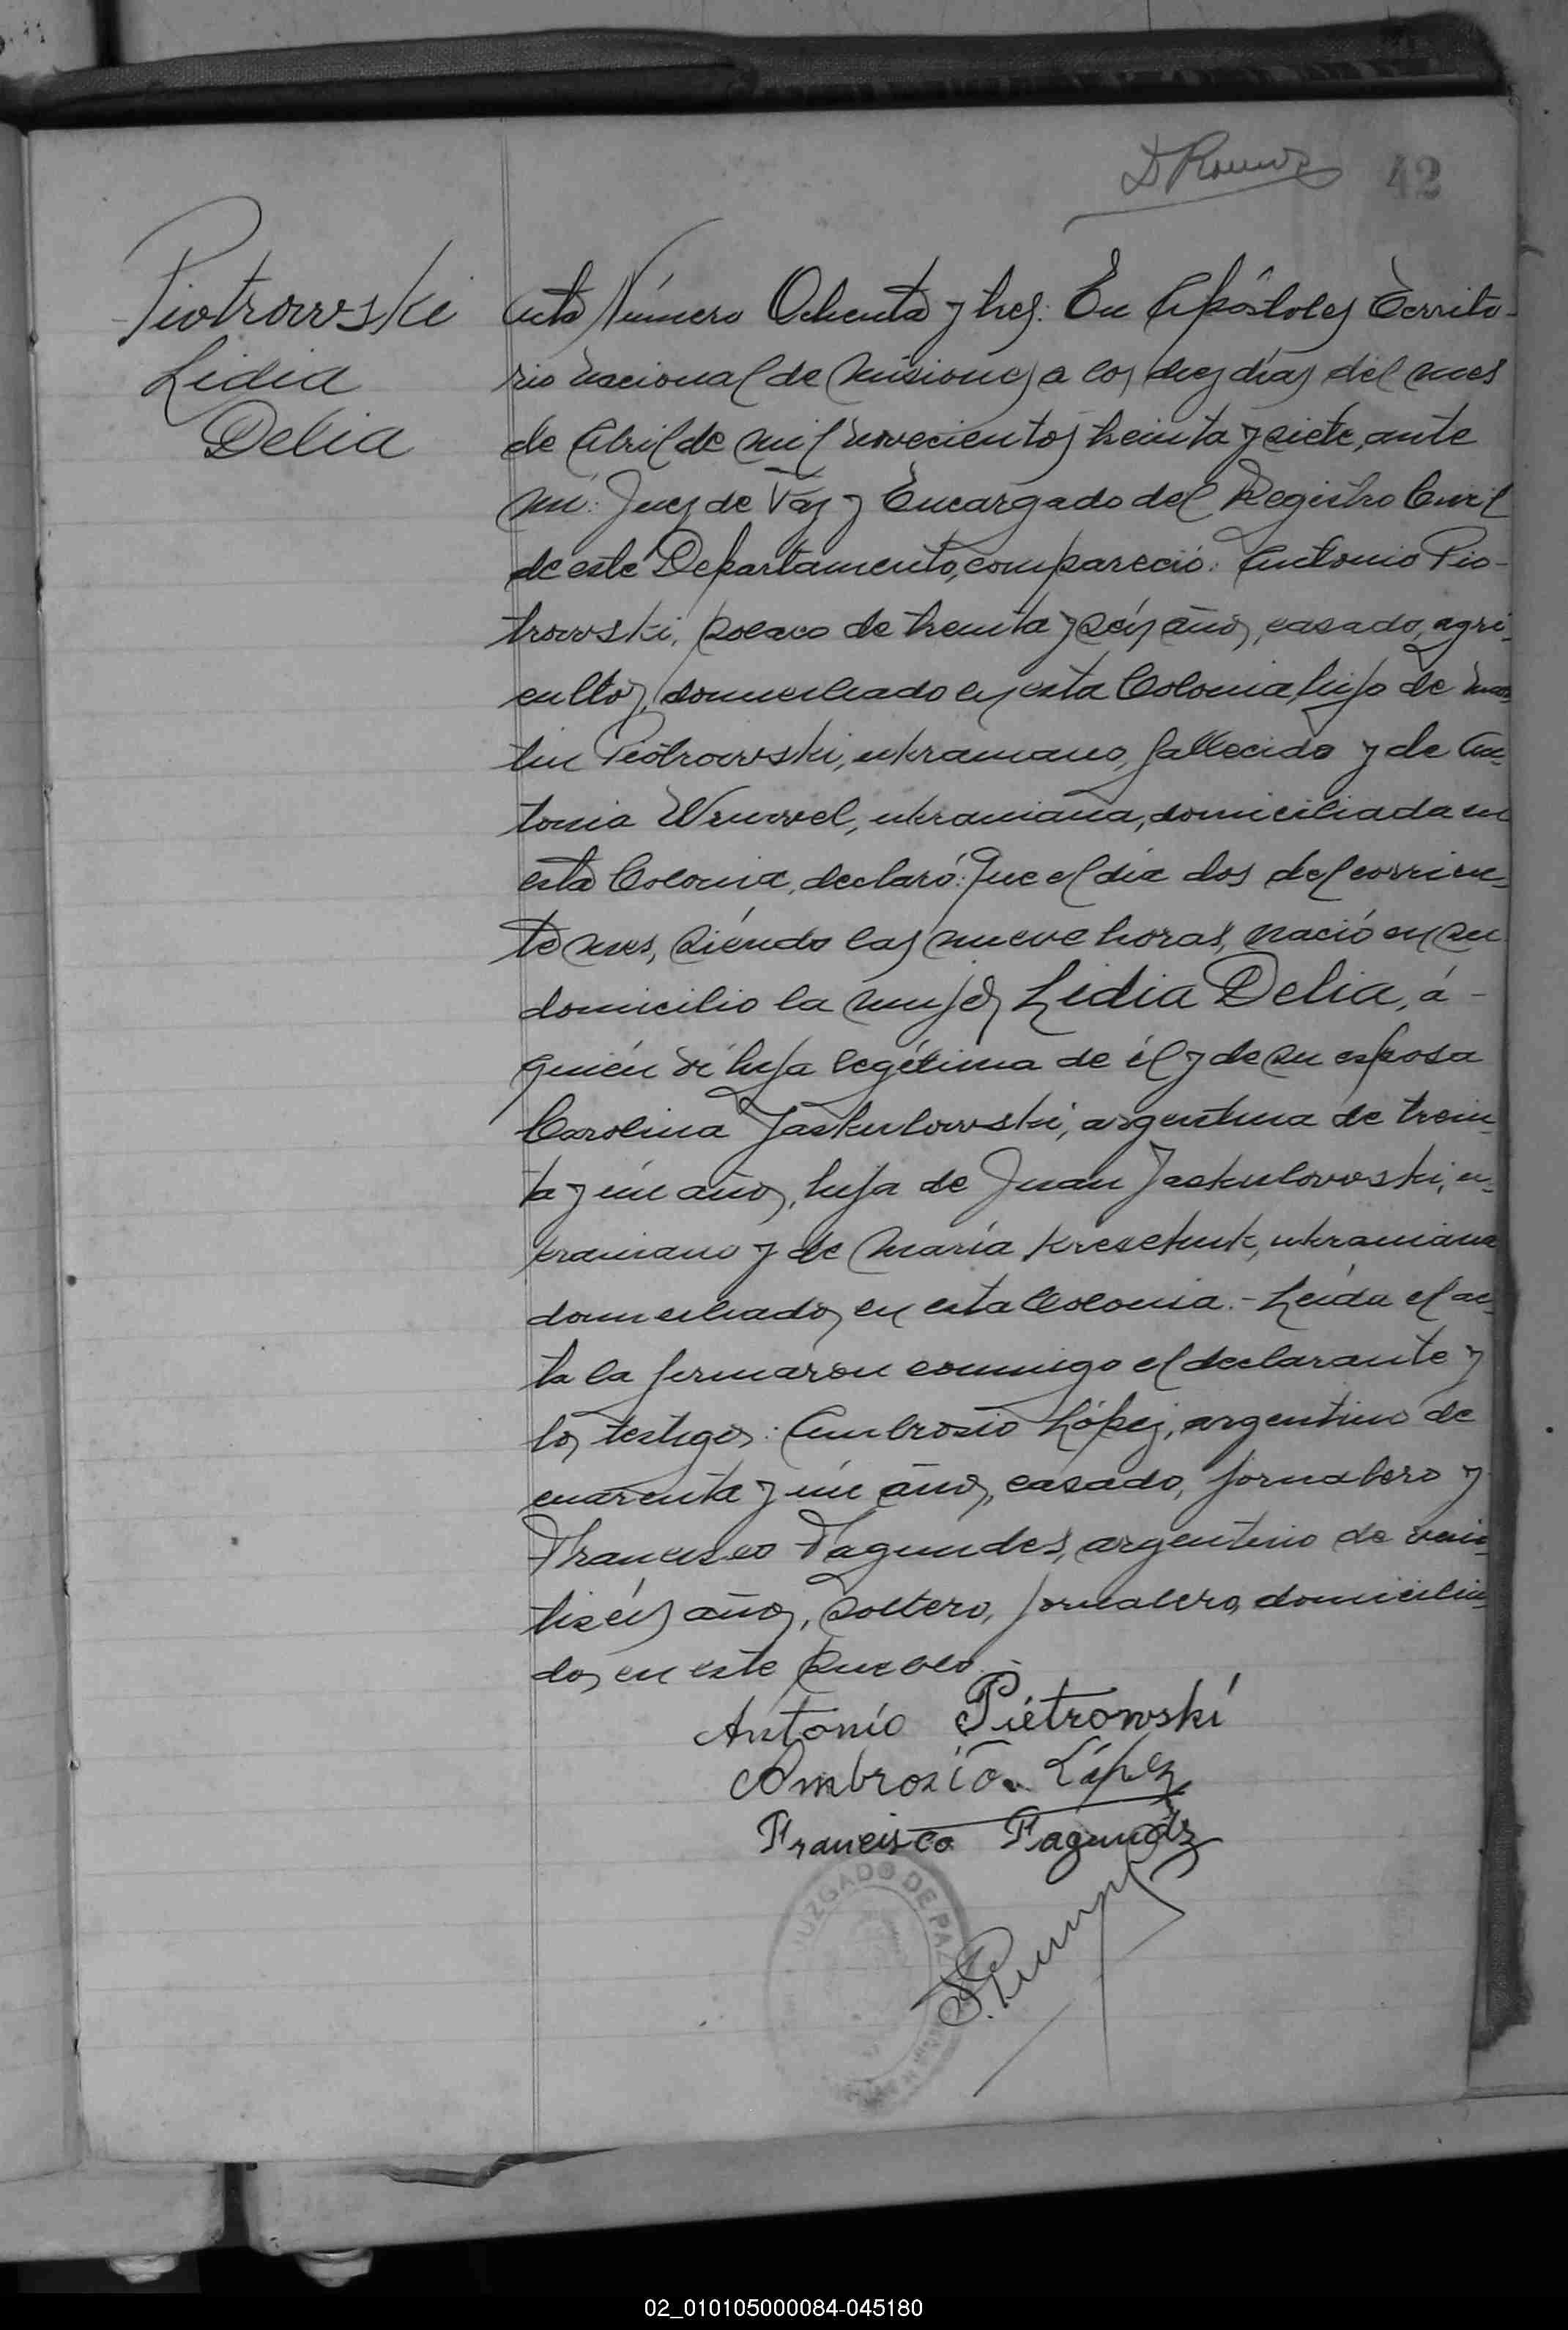 42
Piotrowski
Lidia
Delia
Acta Número Ochenta y tres: En Apóstoles Territo-
rio Nacional de Misiones a los diez días del mes
de Abril de mil novecientos treinta y siete, ante
mí: Juez de Paz y Encargado del Registro Civil
de este Departamento, compareció: Antonio Pio-
trowski, polaco de treinta y seis años, casado, agri-
cultor, domiciliado en esta Colonia, hijo de Mar-
tin Piotrowski, ukraniano, fallecido y de An-
tonia Wruwel, ukraniana, domiciliada en
esta Colonia, declaró: Que el día dos del corrien-
te mes, siéndo las nueve horas, nació en su
domicilio la mujer Lidia Delia, á -
quién dí hija legítima de él y de su esposa
Carolina Jaskulowski, argentina de trein-
ta y ún años, hija de Juan Jaskulowski, u-
kraniano y de María Kreschuk, ukraniana
domiciliados en esta Colonia.- Leída el ac-
ta la firmaron conmigo el declarante y
los testigos: Ambrosio López, argentino de
cuarenta y ún años, casado, jornalero y
Francisco Fagundes, argentino de vein-
tiséis años, soltero, jornalero, domicilia-
dos en este pueblo.-
Antonio Piétrowski
Ambrosio López
Francisco Fagundez
JUZGADO DE PAZ
02_010105000084-045180